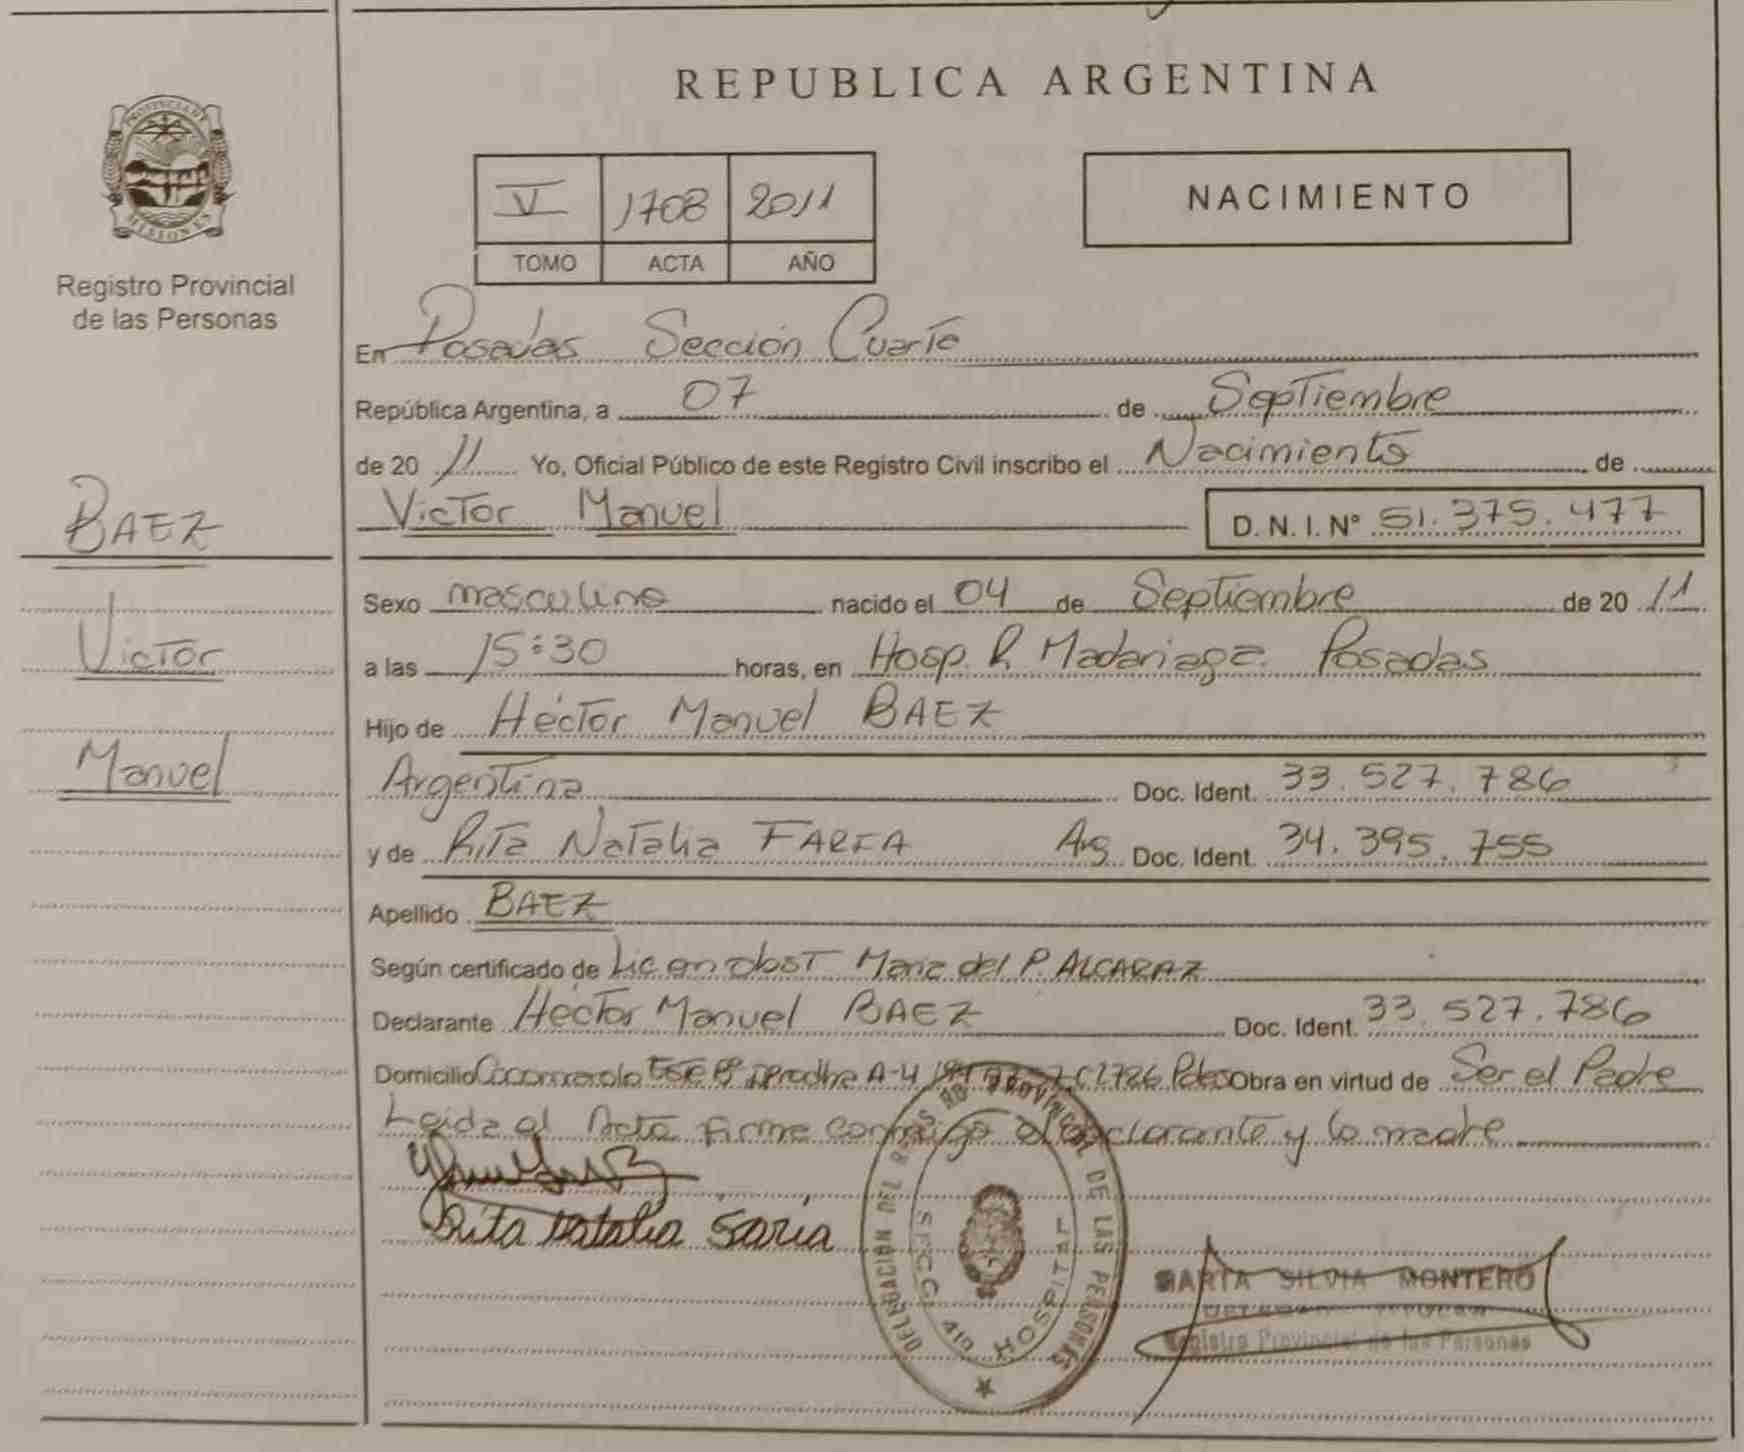 REPUBLICA ARGENTINA
PROVINCIA DE MISIONES
Registro Provincial
de las Personas
V 1708 2011
TOMO ACTA AÑO
NACIMIENTO
En Posadas Sección Cuarta
República Argentina, a 07 de Septiembre
de 2011 Yo, Oficial Público de este Registro Civil inscribo el Nacimiento de
Victor Manuel D. N. I. Nº 51.375.477
BAEZ
Victor
Manuel
Sexo masculino nacido el 04 de Septiembre de 2011
a las 15:30 horas, en Hosp. R. Madariaga. Posadas
Hijo de Héctor Manuel BAEZ
Argentina Doc. Ident. 33.527.786
y de Rita Natalia FARIA Arg Doc. Ident. 34.395.755
Apellido BAEZ
Según certificado de Lic en obst Maria del P. ALCARAZ
Declarante Hector Manuel BAEZ Doc. Ident. 33.527.786
Domicilio Bº A-4 Obra en virtud de Ser el Padre
Leida el Acta firma conmigo el declarante y la madre
Rita Natalia Faria
DELEGACIÓN DEL REG PROVINCIAL DE LAS PERSONAS
SECC. 4ta HOSPITAL
MARTA SILVIA MONTERO
Registro Provincial de las Personas